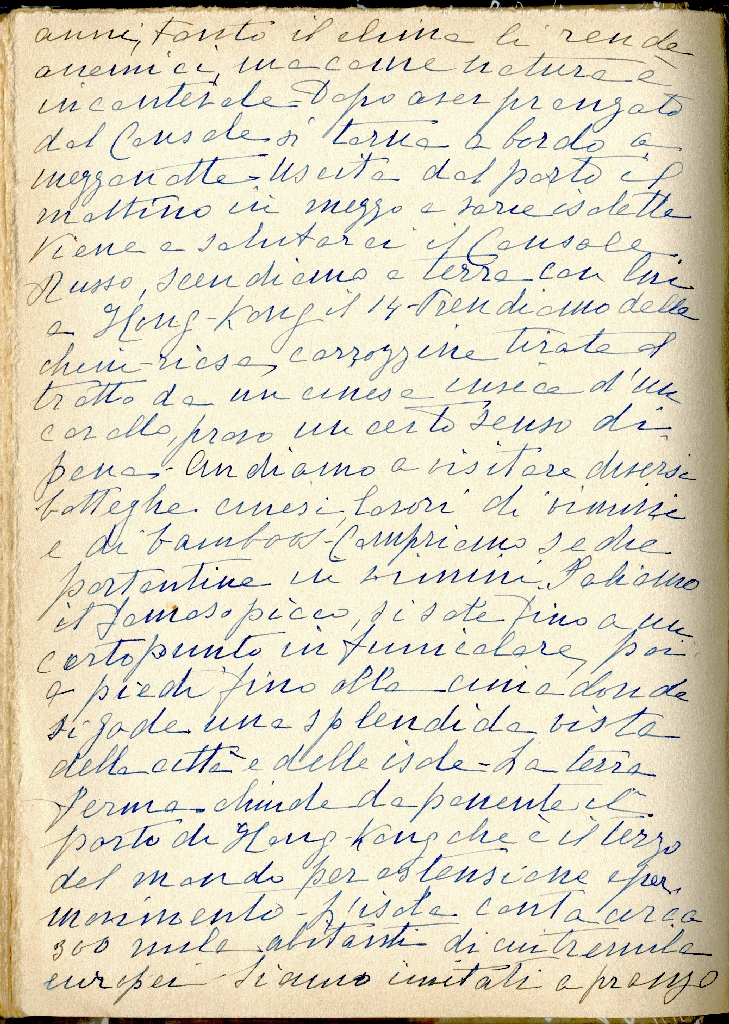 anni, tanto il clima li rende
anemici, ma come natura è
incantevole. Dopo aver pranzato
dal Console si torna a bordo a
mezzanotte. Uscita dal porto il
mattino in mezzo a varie isolette
Viene a salutarci il Console
Russo, scendiamo a terra con lui
a Hong-Kong il 14. Prendiamo delle
chin-ricse, carrozzine tirate al
trotto da un cinese invece d'un
cavallo, provo un certo senso di
pena. Andiamo a visitare diversi
botteghe cinesi, lavori di vimini
e di bamboos. Compriamo sedie
portantine in vimini. Saliamo
il famoso picco, si sale fino a un
certo punto in funicolare, poi
a piedi fino alla cima donde
si gode una splendida vista
della città e delle isole. La terra
ferma chiude da ponente il
porto di Hong-Kong che è il terzo
del mondo per estensione e per
movimento. L'isola conta circa
300 mila abitanti di cui tremila
europei Siamo invitati a pranzo